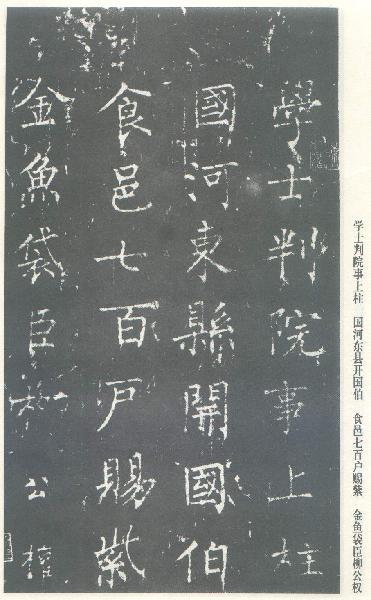 學士判院事上柱
國河東縣開國伯
食邑七百戶賜紫
金魚袋臣柳公權
学士判院事上柱 国河东县开国伯 食邑七百户赐紫 金鱼袋臣柳公权